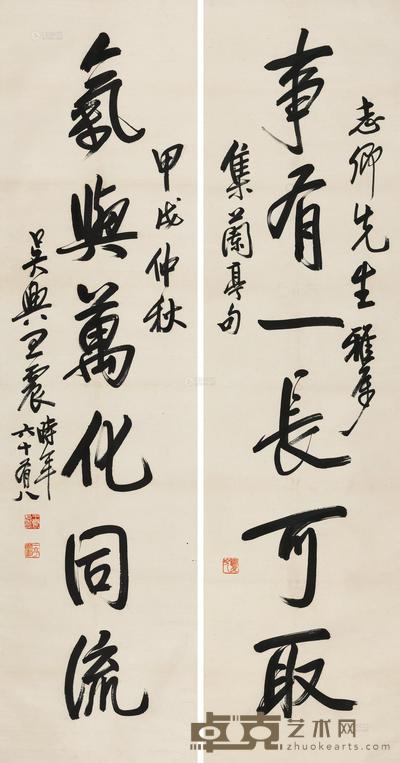 志卿先生雅属
事有一長可取
集蘭亭句
甲戌仲秋
氣與萬化同流
吳興王震時年
六十有八
卓克艺术网
zhuokearts.com